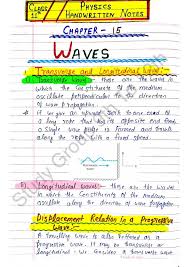 CLASS 11th
PHYSICS
HANDWRITTEN NOTES
CHAPTER - 15
WAVES
1. Transverse and Longitudinal Wave:-
Transverse Wave:- These are the waves in
which the constituents of the medium
oscillate perpendicular to the direction
of wave propagation.
If we give an upward jerk to one end of
a long rope that has its opposite end fixed,
a single wave pulse is formed and travels
along the rope with a fixed speed.
Longitudinal waves:- These are the waves
in which the constituents of the medium
oscillate along the direction of wave
propagation.
Displacement Relation in a Progressive
Wave:-
A travelling wave is also referred as a
progressive wave. It may be transverse or
longitudinal. Consider a transverse wave